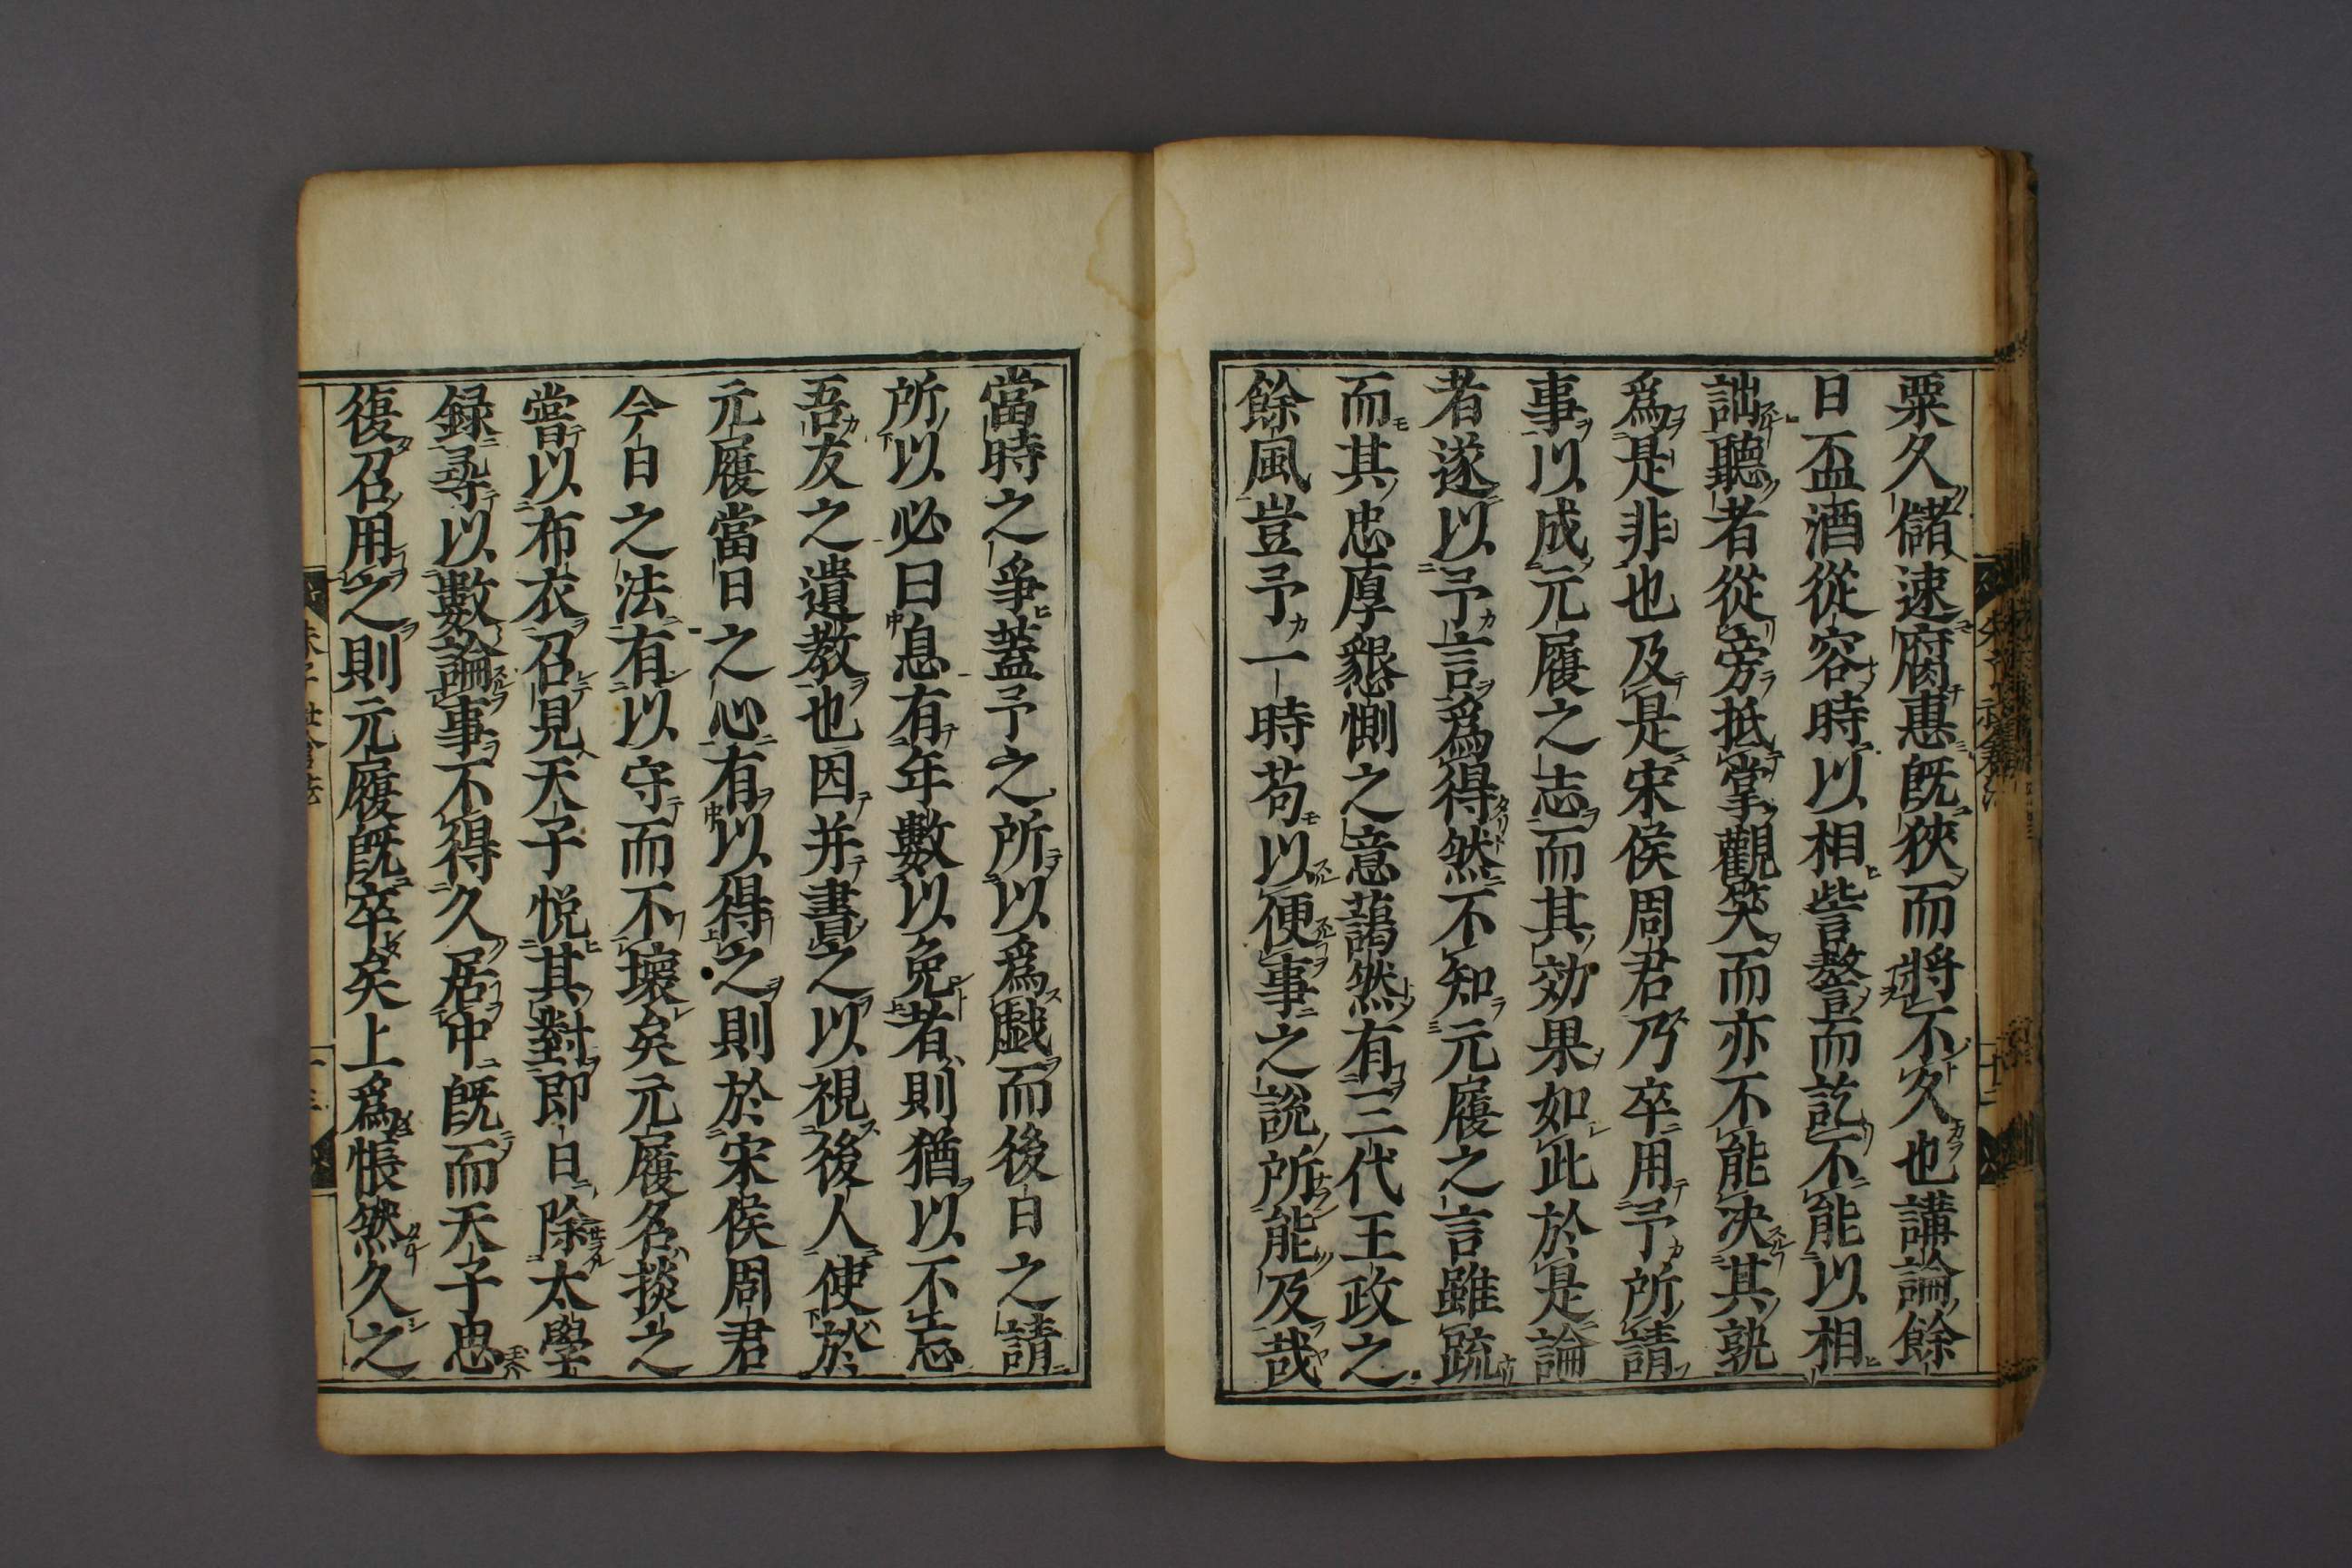 粟久儲速腐惠既狹而將不久也講論餘
日盃酒從容時以相訾謷而訖不能以相
詘聽者從旁抵掌觀笑而亦不能决其孰
爲是非也及是宋侯周君乃卒用予所請
事以成元履之志而其効果如此於是論
者遂以予言爲得然不知元履之言雖䟽
而其忠厚懇惻之意藹然有三代王政之
餘風豈予一時苟以便事之說所能及哉
當時之爭蓋予之所以爲戯而後日之請
所以必曰息有年數以免者則猶以不忘
吾友之遺教也因并書之以視後人使於
元履當日之心有以得之則於宋侯周君
今日之法有以守而不壞矣元履名掞之
嘗以布衣召見天子悦其對即日除太學
録尋以數論事不得久居中既而天子思
復召用之則元履既卒矣上爲悵然久之
朱子社倉法